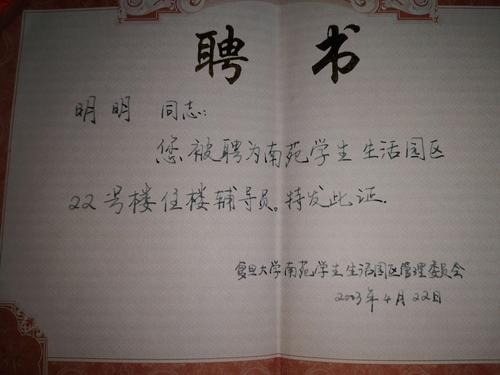 聘书
明明 同志:
您被聘为南苑学生生活园区
22号楼住楼辅导员。特发此证.
复旦大学南苑学生生活园区管理委员会
2003年4月22日